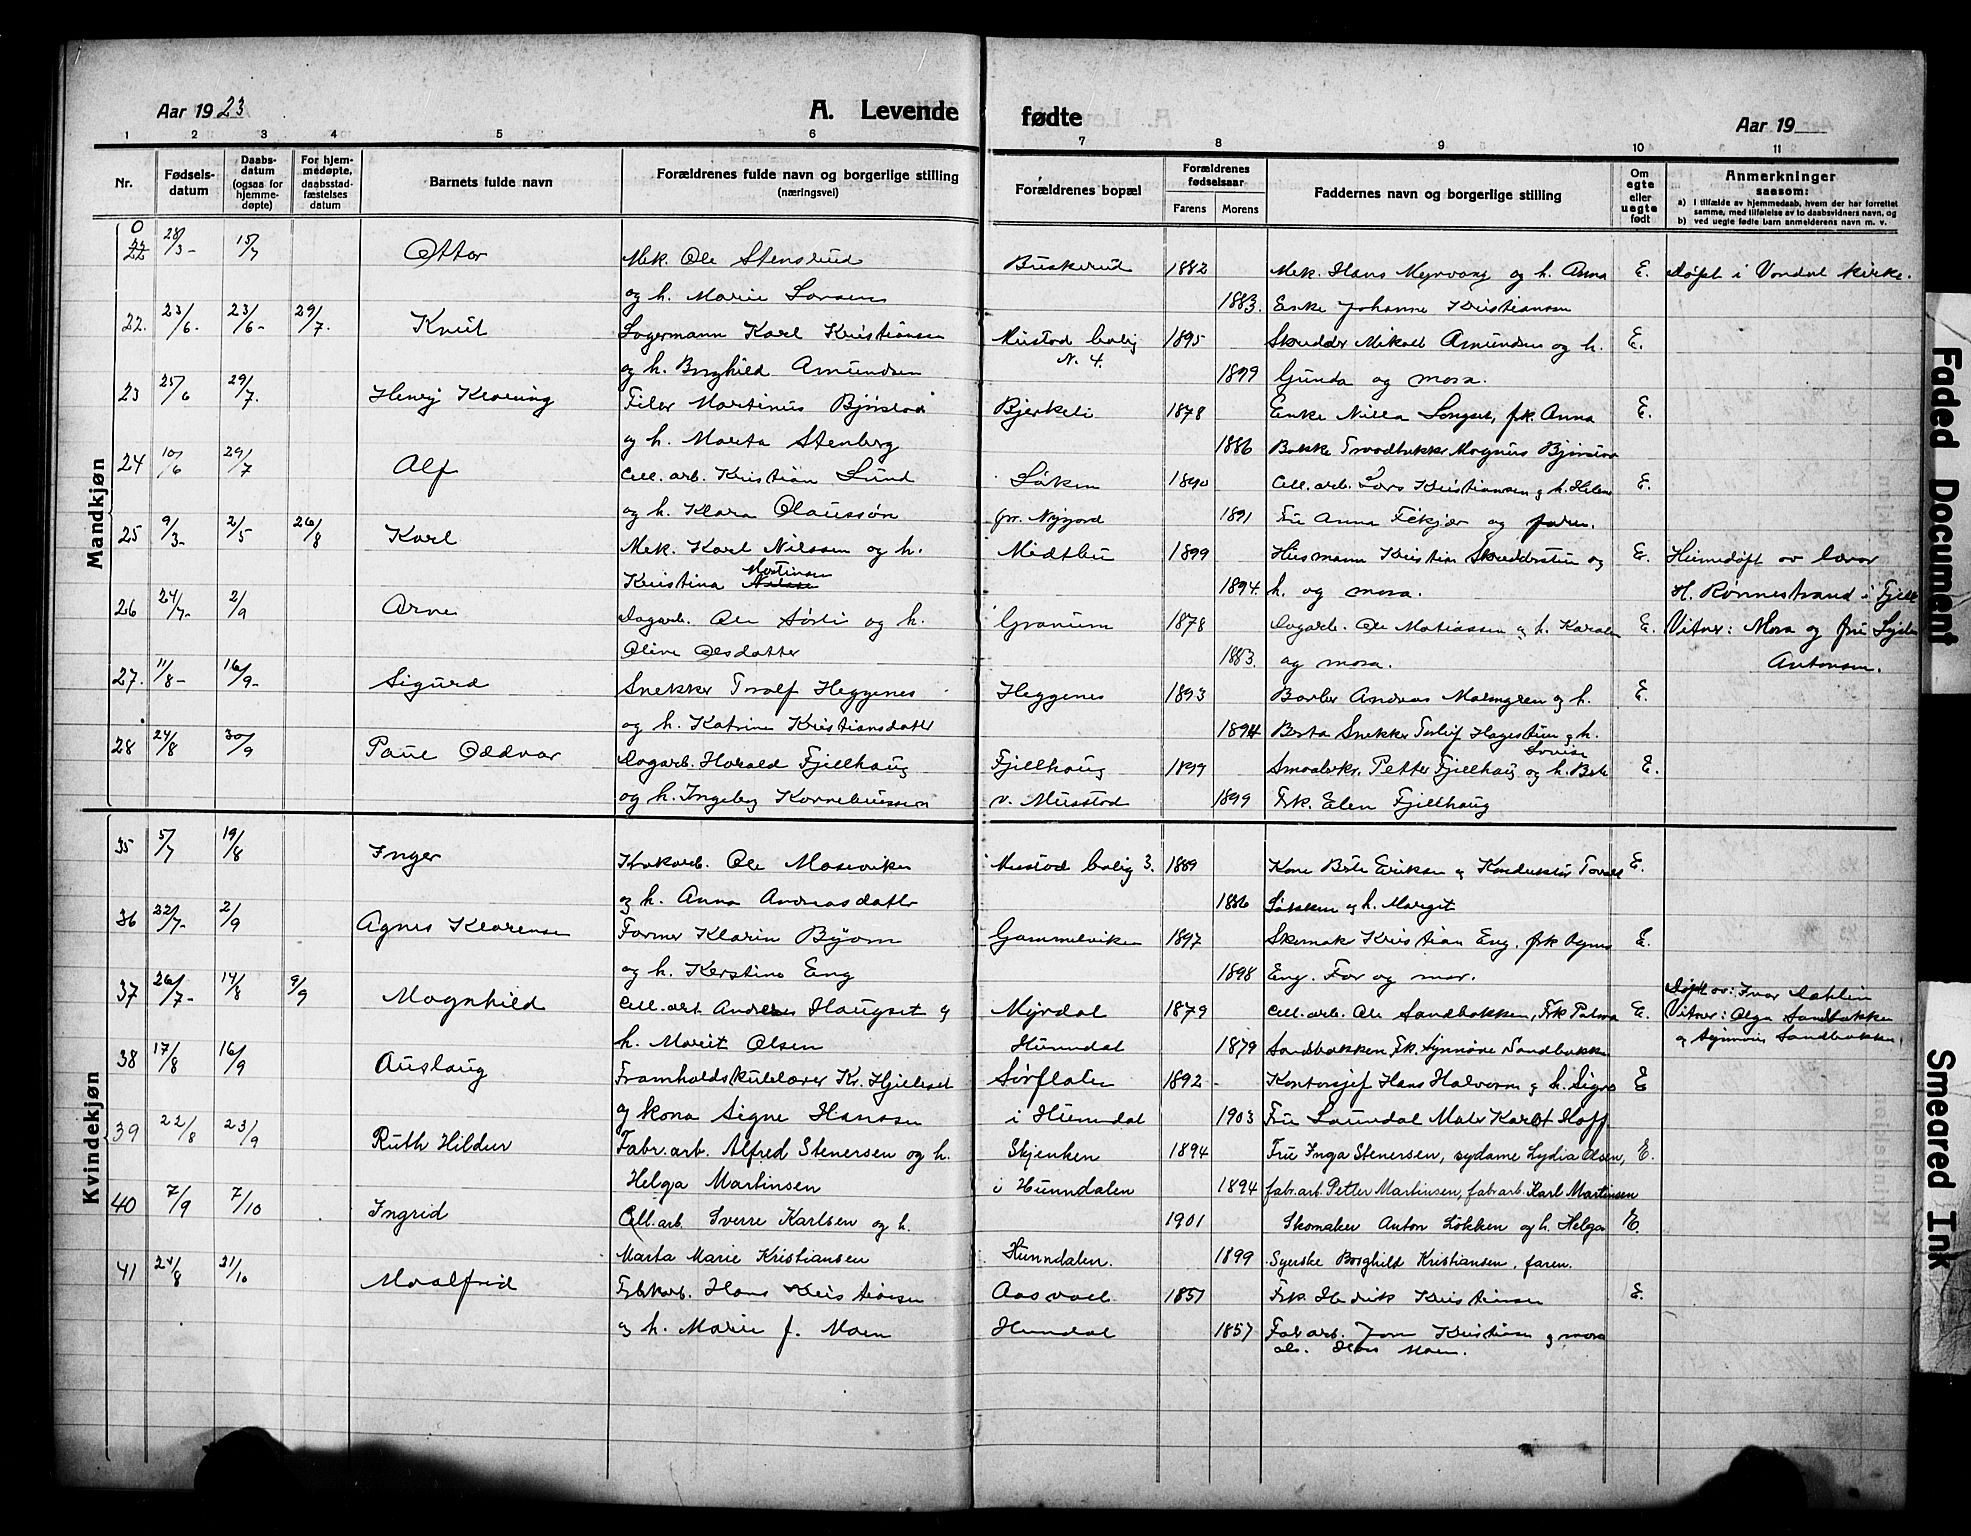 Aar 1923
A. Levende fødte
Aar 19
1 2 3 4 5 6 7 8 9 10 11
Nr.
Fødsels-
datum
Daabs-
datum
(ogsaa for
hjemme-
døpte)
For hjem-
medøpte,
daabsstad-
fæstelses
datum
Barnets fulde navn
Forældrenes fulde navn og borgerlige stilling
(næringsvei)
Forældrenes bopæl
Forældrenes
fødselsaar
Farens Morens
Faddernes navn og borgerlige stilling
Om
egte
eller
uegte
født
Anmerkninger
saasom:
a) I tilfælde av hjemmedaab, hvem der har forrettet
samme, med tilføielse av to daabsvidners navn, og
b) ved uegte fødte barn anmelderens navn m. v.
Mandkjøn
0
22 28/3- 15/7 Ottar Mek. Ole Stensrud Buskerud 1882 Mek. Hans Myrvang og h. Anna E. Døpt i Vardal kirke.
og h. Marie Larsen 1883. Enke Johanne Kristiansen
22. 23/6. 23/6- 29/7. Knut Lagermann Karl Kristiansen Mustad bolig 1895 Skrædder Mikael Amundsen og h. E.
N. 4.
og h. Borghild Amundsen 1899 Gunda og mora.
23 25/6 29/7. Henry Klaring Filer Martinus Bjørstad Bjerkeli 1878 Enke Nilla Longset, frk. Anna E.
og h. Marta Stenberg 1886 Bakke Traadtrekker Magnus Bjørstad
24 10/6 29/7 Alf Cell. arb. Kristian Lund Løken 1890 Cell. arb. Lars Kristiansen og h. Helene E.
og h. Klara Olaussøn Gr. Nygard 1891 Fru Anna Fekjær og faren.
25 9/3- 2/5 26/8 Karl Mek. Karl Nilssen og h. Midtbu 1899 Husmann Kristian Skredderstuen og E. Heimedøpt av lærar
Kristina Martinsen 1894. h. og mora. H. Rønnestrand i Fjell
26 24/7- 2/9 Arne Dagarb. Ole Sørli og h. Granum 1878 Dagarb. Ole Matiassen og h. Karolen E. Vitner: Mora og fru Lyder
Oline Olsdatter 1883. og mora. Antonsen.
27. 11/8- 16/9- Sigurd Snekker Toralf Heggenes Heggenes 1893 Barber Andreas Malmgren og h. E.
og h. Katrine Kristiansdatter 1894 Berta Snekker Torleif Hagestuen og h.
Lovise
28 24/8 30/9 Paul Oddvar Dagarb. Harald Fjellhaug Fjellhaug 1899 Smaabrker. Petter Fjellhaug og h. Berte E.
og h. Ingeborg Korneliussen v. Mustad 1899 Frk. Elen Fjellhaug
Kvindekjøn
35 5/7 19/8 Inger Krokarb. Ole Moseviken Mustad bolig 3. 1889 Kone Berte Eriksen og Konduktør Toralf E.
og h. Anna Andreasdatter 1886 Løkken og h. Margit
36 22/7- 2/9 Agnes Klarense Former Klarin Byom Gammelviken 1897 Skomak Kristian Eng. frk Agnes E.
og h. Kerstine Eng 1898 Eng. Far og mor.
37 26/7- 14/8 9/9 Magnhild Cell. arb. Andreas Haugset og Myrdal 1879 Cell. arb. Ole Sandbakken, Frk Palma E. Døpt av: Ivar Dahlin
Vitner: Olga Sandbakken
h. Marit Olsen Hunndal 1879 Sandbakken Frk. Synnøve Sandbakken og Synnøve Sandbakken
38 17/8 16/9 Auslaug Framhaldskulelærer Kr. Hjelleset Sørflaten 1892- Kontorsjef Hans Halvorsen og h. Signe E
og kona Signe Hansen i Hunndal 1903 Fru Laundal Maler Karl Hoff
39 22/8 23/9 Ruth Hildur Fabr. arb. Alfred Stenersen og h. Skjenken 1894 Fru Inga Stenersen, sydame Lydia Olsen, E.
Helga Martinsen i Hunndalen 1894 fabr. arb. Petter Martinsen, fabr. arb. Karl Martinsen
40 7/9 7/10 Ingrid Cell. arb Sverre Karlsen og h. 1901 Skomaker Anton Løkken og h. Helga E.
Marta Marie Kristiansen Hunndalen. 1899 Syerske Borghild Kristiansen, faren.
41 24/8 21/10 Moalfrid Fabrkarb. Hans Kristiansen Aasvael 1857 Frk. Hedvik Kristiansen E.
og h. Marie f. Moen Hundal 1857 Fab arb. Jon Kristiansen og mora
Hans Moen.
Faded Document
Smeared Ink